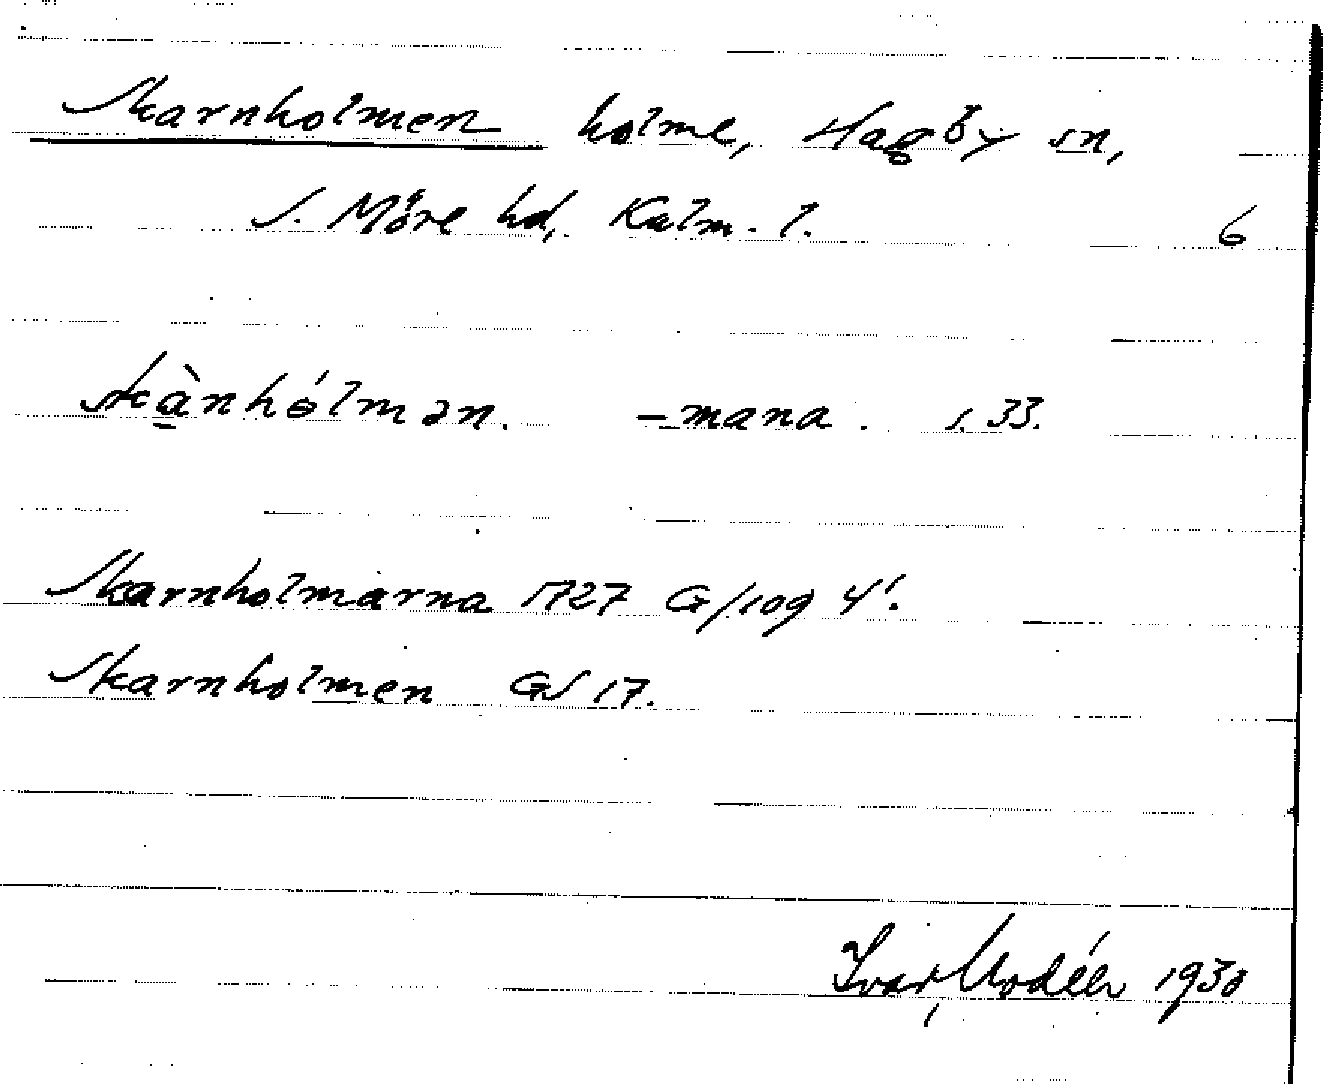 Skarnholmen holme, Hagby sn,
S. Möre hd, Kalm. l. 6
skа̀nhólmən. -mana. s. 33.
Skarnholmarna 1727 G/109 4'.
Skarnholmen GS 17.
Ivar Modéer 1930